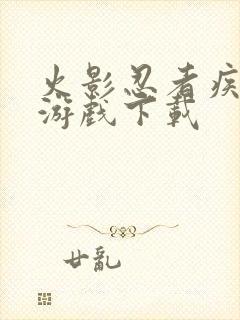 火影忍者疾
游戏下載
廿亂